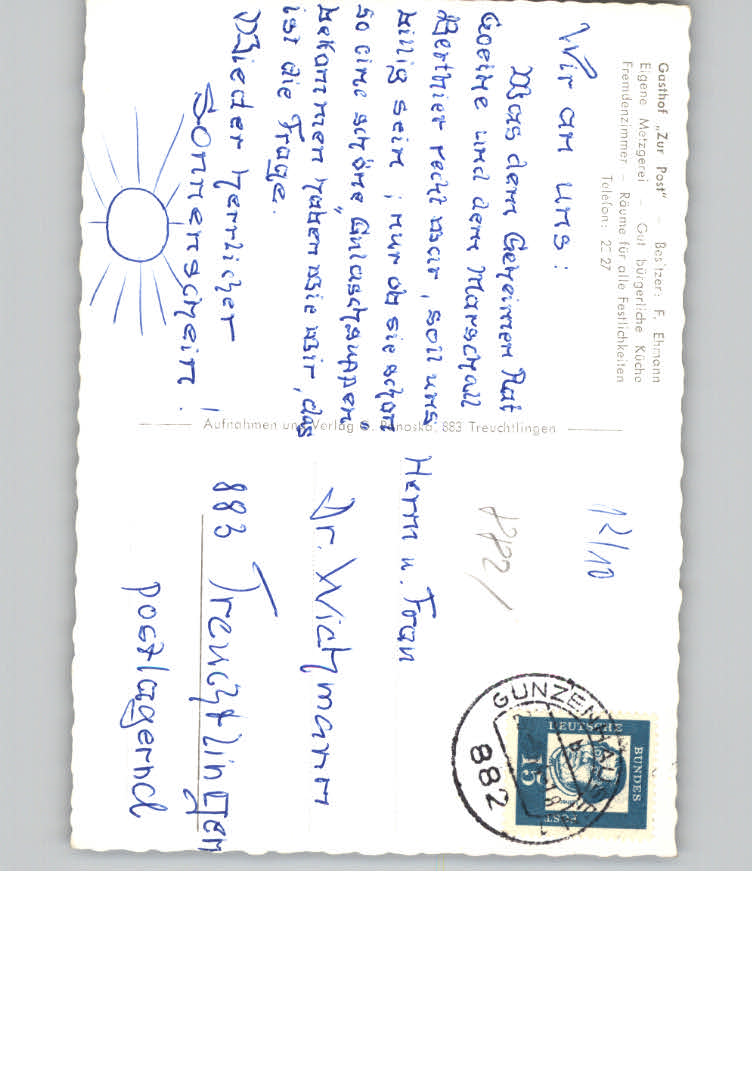 Gasthof „Zur Post" – Besitzer: F. Ehmann
Eigene Metzgerei – Gut bürgerliche Küche
Fremdenzimmer – Räume für alle Festlichkeiten
Telefon: 2227
Wir an uns:
Was dem Geheimen Rat
Goethe und dem Marschall
Berthier recht war, soll uns
billig sein; nur ob sie schon
so eine schöne „Gulaschsuppe"
bekommen haben wie wir, das
ist die Frage.
Wieder herrlicher
Sonnenschein!
Aufnahmen und Verlag 883 Treuchtlingen
12/10
882/
Herrn u. Frau
Dr. Wichmann
883 Treuchtlingen
postlagernd
GUNZENHAUSEN
882
DEUTSCHE
BUNDES
POST
15